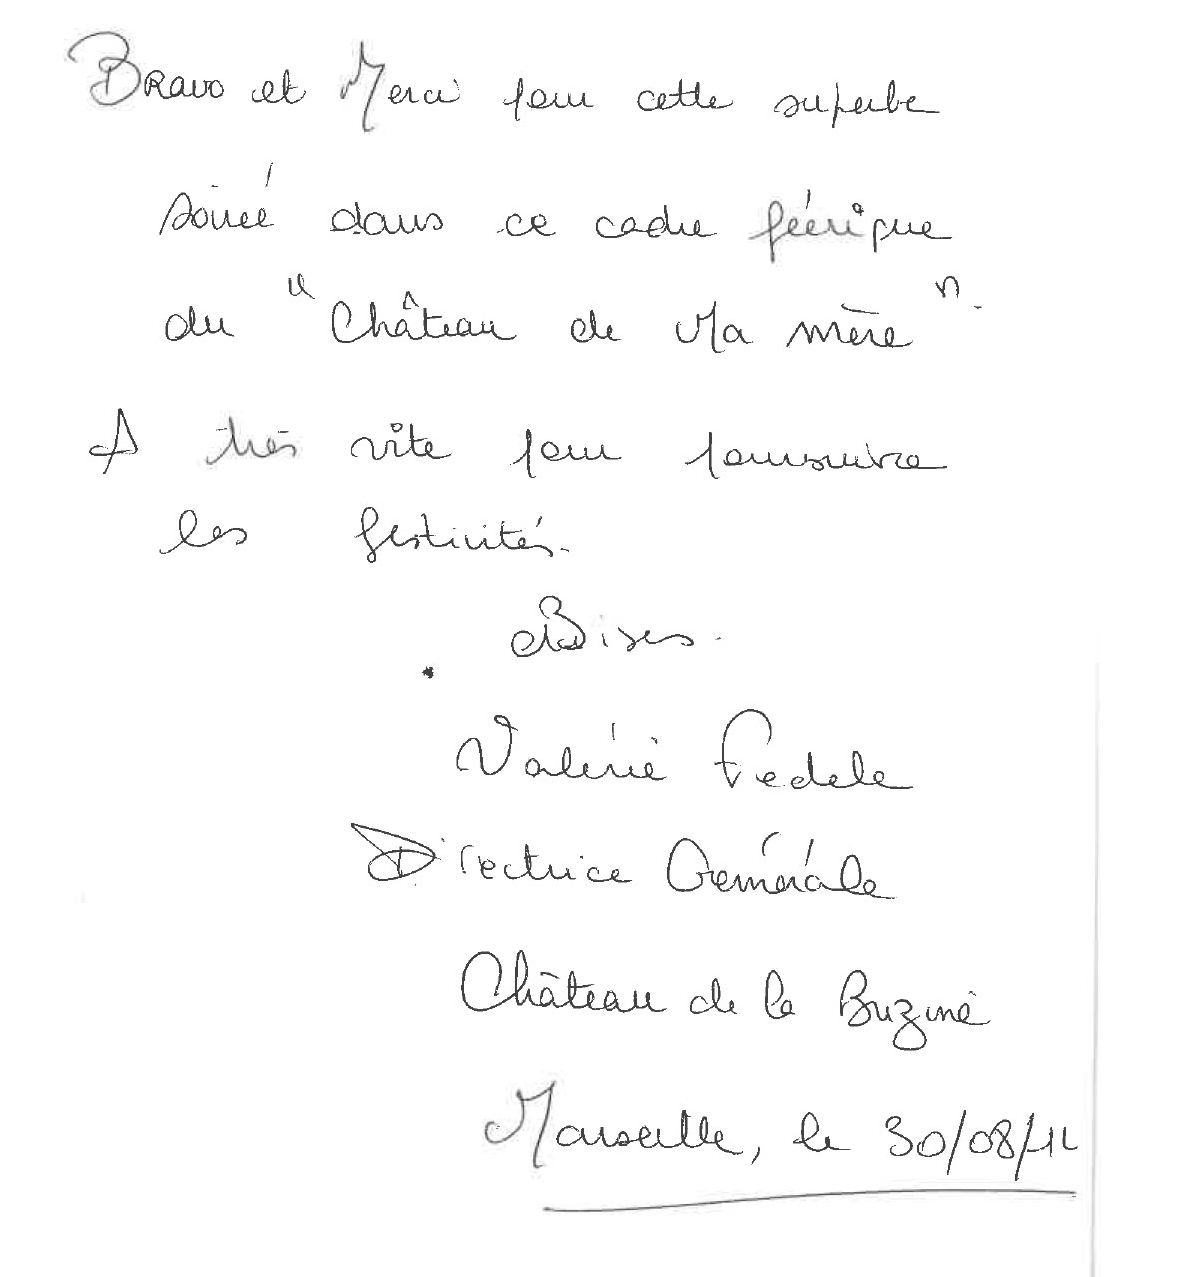 Bravo et Merci pour cette superbe
soirée dans ce cadre féérique
du "Château de Ma mère".
A très vite pour poursuivre
les festivités.
Bises.
Valérie Fedele
Directrice Générale
Château de la Buzine
Marseille, le 30/08/12